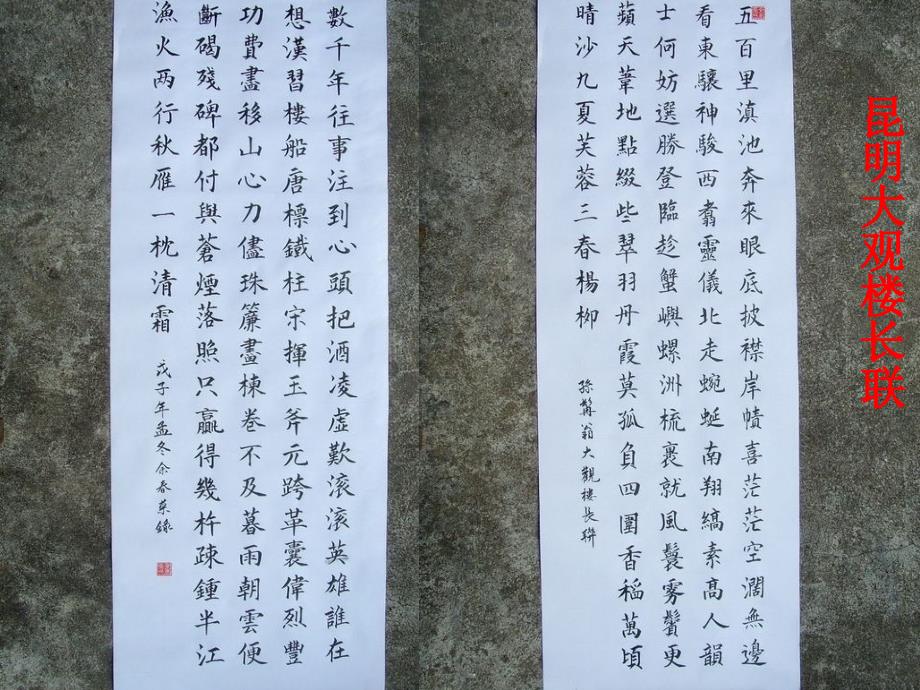 昆明大观楼长联
五百里滇池奔來眼底披襟岸幘喜茫茫空濶無邊
看東驤神駿西翥靈儀北走蜿蜒南翔縞素高人韻
士何妨選勝登臨趂蟹嶼螺洲梳裹就風鬟雾鬢更
蘋天葦地點綴些翠羽丹霞莫孤負四圍香稻萬頃
晴沙九夏芙蓉三春楊柳
孫髯翁大觀樓長聯
數千年往事注到心頭把酒凌虛歎滚滚英雄誰在
想漢習樓船唐標鐵柱宋揮玉斧元跨革囊偉烈豐
功費盡移山心力儘珠簾畫棟卷不及暮雨朝雲便
斷碣殘碑都付與蒼煙落照只贏得幾杵疎鍾半江
漁火两行秋雁一枕清霜
戊子年孟冬余春錄